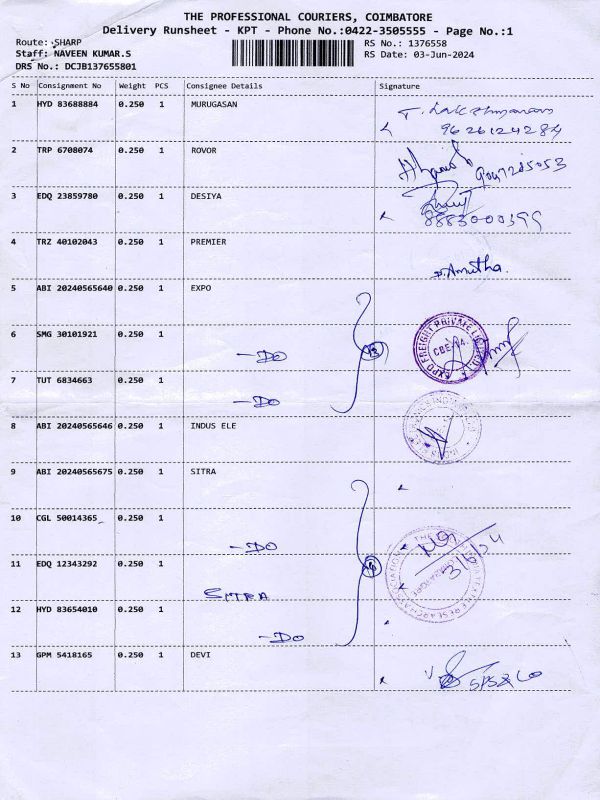 THE PROFESSIONAL COURIERS, COIMBATORE
Delivery Runsheet - KPT - Phone No.:0422-3505555 - Page No.:1
Route: SHARP
RS No.: 1376558
Staff: NAVEEN KUMAR.S
RS Date: 03-Jun-2024
DRS No.: DCJB137655801
S No Consignment No Weight PCS Consignee Details Signature
1 HYD 83688884 0.250 1 MURUGASAN
9626124284
2 TRP 6708074 0.250 1 ROVOR
9047285053
3 EDQ 23859780 0.250 1 DESIYA
8883000399
4 TRZ 40102043 0.250 1 PREMIER
P. Amutha.
5 ABI 20240565640 0.250 1 EXPO
EXPO FREIGHT PRIVATE LIMITED
CBE-14.
6 SMG 30101921 0.250 1
-DO
7 TUT 6834663 0.250 1
-DO
8 ABI 20240565646 0.250 1 INDUS ELE
9 ABI 20240565675 0.250 1 SITRA
10 CGL 50014365 0.250 1
-DO
3/6/24
11 EDQ 12343292 0.250 1
SITRA
12 HYD 83654010 0.250 1
-DO
13 GPM 5418165 0.250 1 DEVI